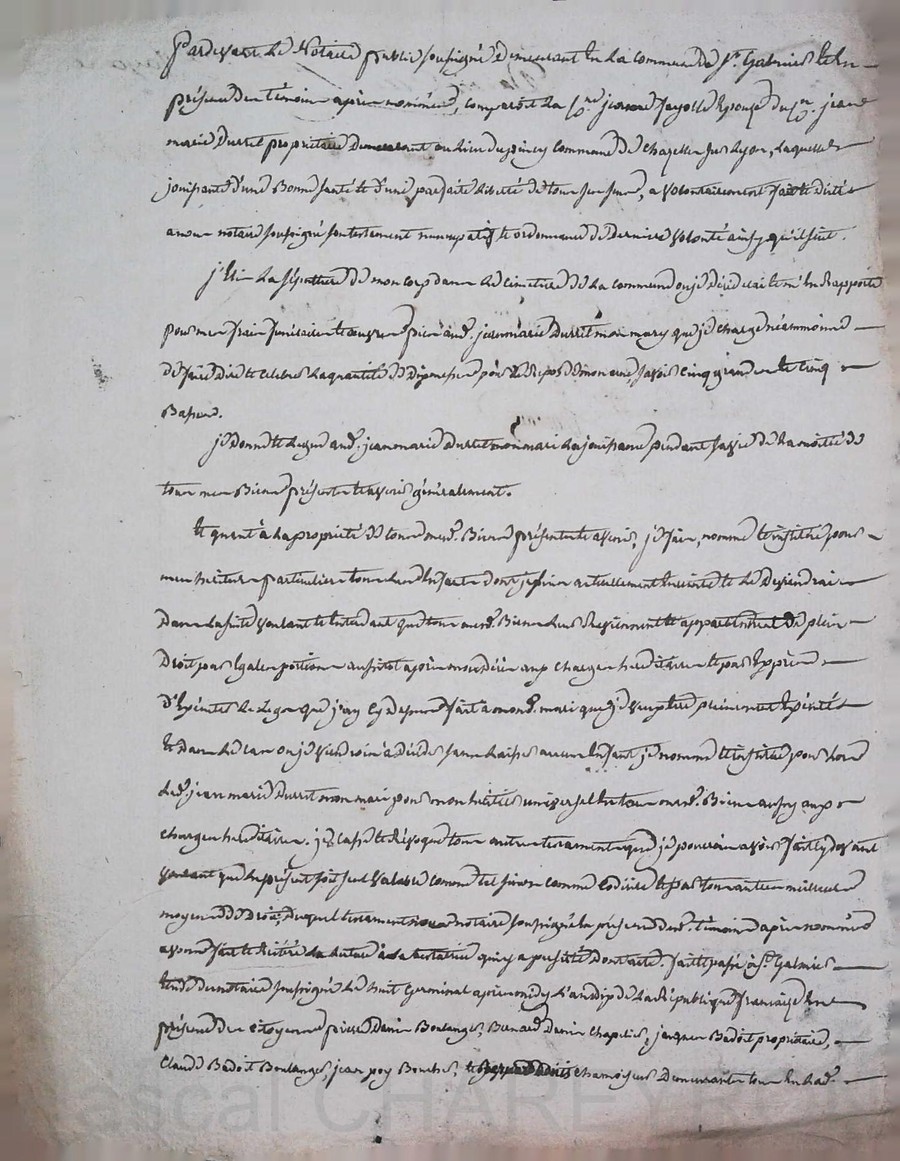 Pardevant Le Notaire public soussigné demeurant En La Commune de St. Galmier Et En
présence des témoins après nommés, comparoit La Cne jeanne fayolle Epouse du Cen. jean
marie Durret propriétaire demeurant au Lieu du piney Commune de Chazelles sur Lyon, Laquelle
jouissante d'une Bonne santé et d'une parfaite Liberté de tous ses sens, a volontairement fait et dicté
a nous notaire soussigné son testament nuncupatif et ordonnance de Derniere volonté ainsy qu'il suit.
j'Elis La sépulture de mon corps dans Le cimetiere de La commune ou je décederai et m'En Rapporte
pour mes frais funéraires et œuvres pies aud. jean marie Durret mon mary que je charge néanmoins
de faire dire et célébrer La quantité de Dix messes pour Le Repos de mon ame, savoir Cinq grandes et Cinq
Basses.
je donne et Legue aud. jean marie Durret mon mari La jouissance pendant sa vie de La moitié de
tous mes Biens présents et avenir généralement.
Et quant à La propriété de tous mesd. Biens présents et avenir, je fais, nomme et institue pour
mes heritiers particuliers tous Les Enfants dont je suis actuellement Enceinte et Le Deviendrai
Dans La suite voulant et Entendant que tous mesd. Biens Leurs Reviennent et appartiennent de plein
Droit par Egales portions aussitot après mon décès aux charges héréditaires et par Exprès
D'Exécuter Le Legs que j'ay Cy dessus fait a mond. mari que je veux Etre pleinement Exécuté
Et dans Le cas ou je viendrois à décéder sans Laisser aucun Enfant je nomme et institue pour Lors
Led. jean marie Durret mon mari pour mon heritier universel En tous mesd. Biens aussy aux
charges héréditaires. je Casse et Révoque tous autres testaments que je pourrois avoir fait Cy devant
voulant que Le présent soit seul valable comme tel sinon comme Codicile et par tous autres meilleurs
moyens de Droit, Duquel testament nous notaire soussigné En présence desd. témoins après nommés
avons fait et Réitéré La Lecture à La testatrice qui y a persisté Dont acte. fait et passé à St. Galmier
Etude du notaire soussigné Le huit Germinal après midy L'an dix de La République française En
présence des Citoyens pierre Danis Boulanger, Bernard Danis Chapelier, jacques Badoit propriétaire,
Claude Badoit Boulanger, jean pey Boucher, et chamoiseur Demeurants tous En Lad.